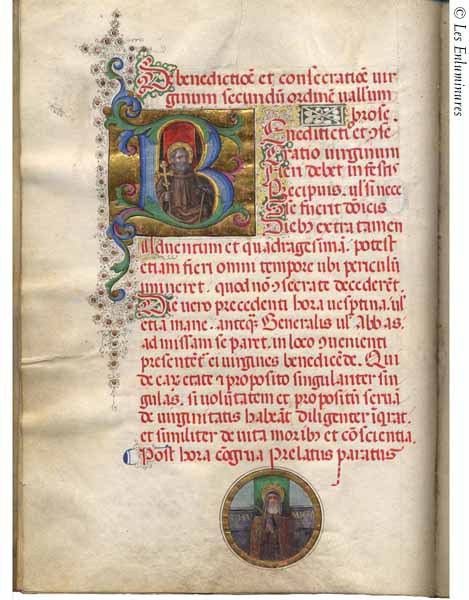 De benedictioē et consecratioē uir
ginum secundū ordinē uallium
brose.
Benedictio et ɔse
cratio uirginum
fieri debet in festis
precipuis. ul' si nece
sse fuerit dōicis
diebꝫ extra tamen
aduentum et quadragesimā. potest
etiam fieri omni tempore ubi periculū
immineret. quod nō ɔsecrate decederēt.
Die uero precedenti hora uesptina. ul'
etiā mane. anteqꝫ Generalis ul' Abbas.
ad missam se paret. in loco ɔuenienti
presentētʳ ei uirgines benedicēde. Qui
de eaꝝ etate ⁊ proposito singulariter sin
gulas. si uolūtatem et propositū seruā
de uirginitatis habeāt diligenter iq̄rat.
et similiter de uita moribꝫ et cōscientia.
Post hora cōgrua Prelatus paratus
© Les Enluminures